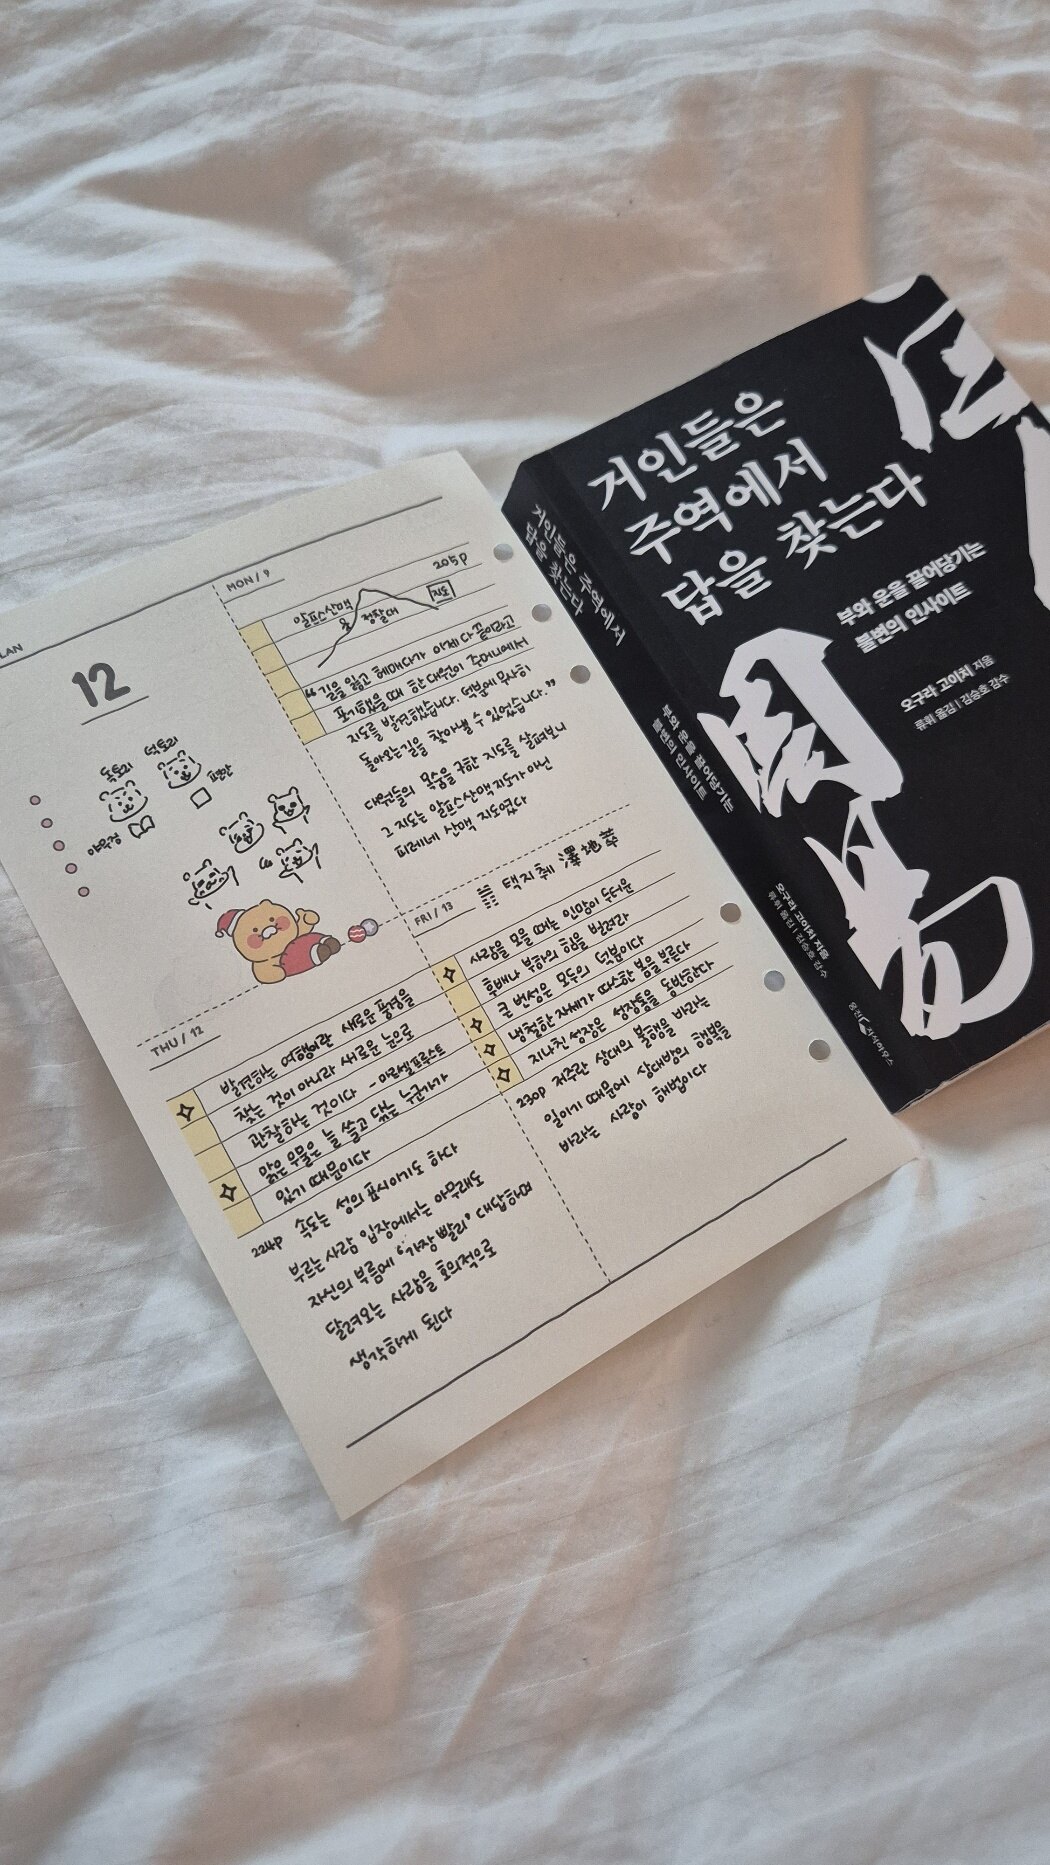 LAN
12
도토리
덕토리
표한
야무징
MON / 9
205P
알프스산맥
정찰대
지도
"길을 잃고 헤매다가 이제 다 끝이라고
포기했을 때 한 대원이 주머니에서
지도를 발견했습니다. 덕분에 무사히
돌아오는 길을 찾아낼 수 있었습니다."
대원들의 목숨을 구한 지도를 살펴보니
그 지도는 알프스산맥 지도가 아닌
피레네 산맥 지도였다
THU / 12
발견하는 여행이란 새로운 풍경을
찾는 것이 아니라 새로운 눈으로
관찰하는 것이다 - 마르셀 프루스트
맑은 우물은 늘 쓸고 닦는 누군가가
있기 때문이다
224P 속도는 성의 표시이기도 하다
부르는 사람 입장에서는 아무래도
자신의 부름에 '가장 빨리' 대답하며
달려오는 사람을 호의적으로
생각하게 된다
FRI / 13
택지췌 澤地萃
사람을 모을 때는 인망이 두터운
후배나 부하의 힘을 빌려라
큰 번성은 모두의 덕분이다
냉철한 자세가 따스한 봄을 부른다
지나친 성장은 성장통을 동반한다
230P 저주란 상대의 불행을 바라는
일이기 때문에 상대방의 행복을
바라는 사랑이 해법이다
거인들은 주역에서
답을 찾는다
부와 운을 끌어당기는
불변의 인사이트
오구라 고이치 지음
류휘 옮김 | 김승호 감수
웅진 지식하우스
거인들은
주역에서
답을 찾는다
부와 운을 끌어당기는
불변의 인사이트
오구라 고이치 지음
류휘 옮김 | 김승호 감수
周易